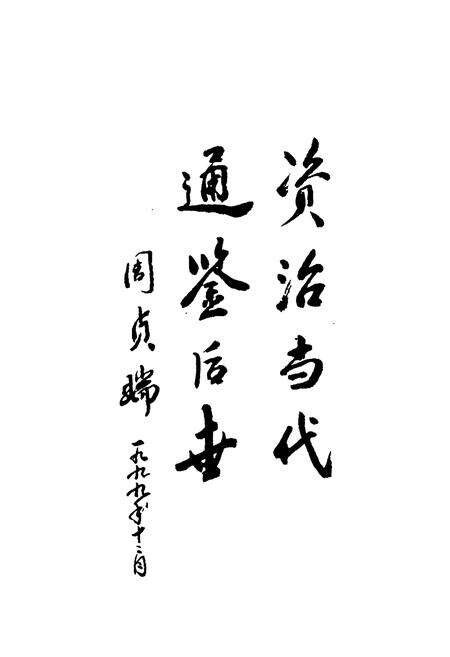 资治当代
通鉴后世
周贞瑞
一九九九年十二月